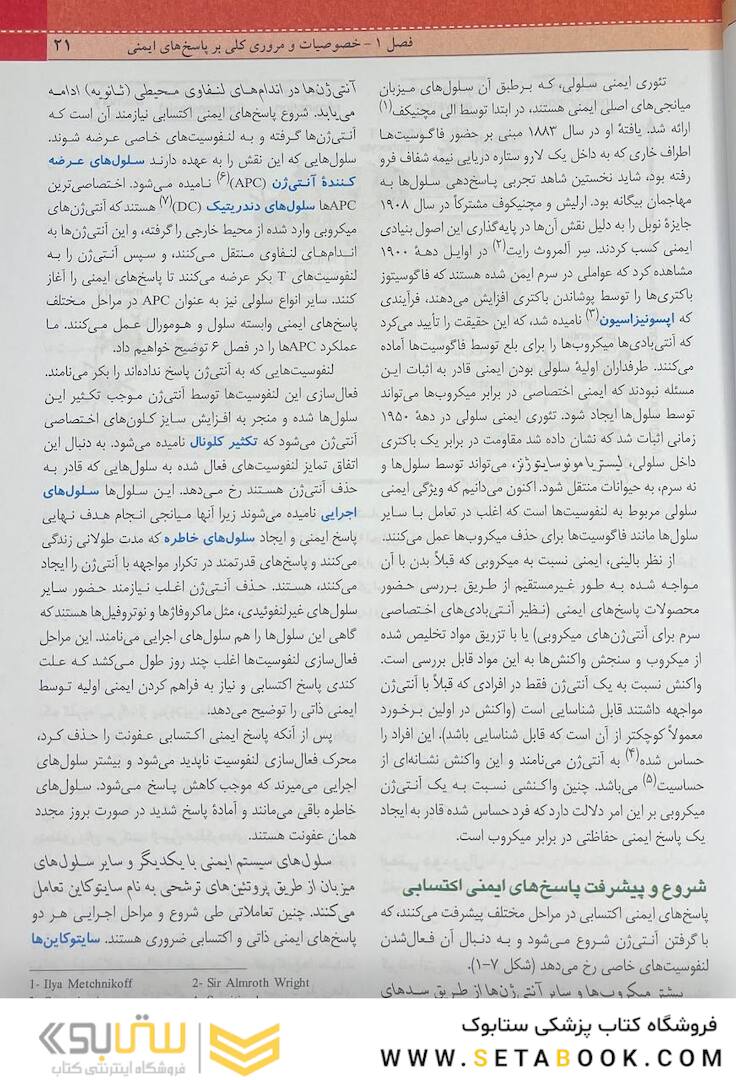 فصل ۱ - خصوصیات و مروری کلی بر پاسخ‌های ایمنی ۲۱
تئوری ایمنی سلولی، که برطبق آن سلول‌های میزبان
میانجی‌های اصلی ایمنی هستند، در ابتدا توسط الی مچنیکف(۱)
ارائه شد. یافتهٔ او در سال ۱۸۸۳ مبنی بر حضور فاگوسیت‌ها
اطراف خاری که به داخل یک لارو ستاره دریایی نیمه شفاف فرو
رفته بود، شاید نخستین شاهد تجربی پاسخ‌دهی سلول‌ها به
مهاجمان بیگانه بود. ارلیش و مچنیکوف مشترکاً در سال ۱۹۰۸
جایزهٔ نوبل را به دلیل نقش آن‌ها در پایه‌گذاری این اصول بنیادی
ایمنی کسب کردند. سِر آلمروث رایت(۲) در اوایل دههٔ ۱۹۰۰
مشاهده کرد که عواملی در سرم ایمن شده هستند که فاگوسیتوز
باکتری‌ها را توسط پوشاندن باکتری افزایش می‌دهند، فرآیندی
که اپسونیزاسیون(۳) نامیده شد، که این حقیقت را تأیید می‌کرد
که آنتی‌بادی‌ها میکروب‌ها را برای بلع توسط فاگوسیت‌ها آماده
می‌کنند. طرفداران اولیهٔ سلولی بودن ایمنی قادر به اثبات این
مسئله نبودند که ایمنی اختصاصی در برابر میکروب‌ها می‌تواند
توسط سلول‌ها ایجاد شود. تئوری ایمنی سلولی در دههٔ ۱۹۵۰
زمانی اثبات شد که نشان داده شد مقاومت در برابر یک باکتری
داخل سلولی، لیستریا مونوسایتوژنز، می‌تواند توسط سلول‌ها و
نه سرم، به حیوانات منتقل شود. اکنون می‌دانیم که ویژگی ایمنی
سلولی مربوط به لنفوسیت‌ها است که اغلب در تعامل با سایر
سلول‌ها مانند فاگوسیت‌ها برای حذف میکروب‌ها عمل می‌کنند.
از نظر بالینی، ایمنی نسبت به میکروبی که قبلاً بدن با آن
مواجه شده به طور غیرمستقیم از طریق بررسی حضور
محصولات پاسخ‌های ایمنی (نظیر آنتی‌بادی‌های اختصاصی
سرم برای آنتی‌ژن‌های میکروبی) یا با تزریق مواد تخلیص شده
از میکروب و سنجش واکنش‌ها به این مواد قابل بررسی است.
واکنش نسبت به یک آنتی‌ژن فقط در افرادی که قبلاً با آنتی‌ژن
مواجهه داشتند قابل شناسایی است (واکنش در اولین برخورد
معمولاً کوچکتر از آن است که قابل شناسایی باشد). این افراد را
حساس شده(۴) به آنتی‌ژن می‌نامند و این واکنش نشانه‌ای از
حساسیت(۵) می‌باشد. چنین واکنشی نسبت به یک آنتی‌ژن
میکروبی بر این امر دلالت دارد که فرد حساس شده قادر به ایجاد
یک پاسخ ایمنی حفاظتی در برابر میکروب است.
شروع و پیشرفت پاسخ‌های ایمنی اکتسابی
پاسخ‌های ایمنی اکتسابی در مراحل مختلف پیشرفت می‌کنند، که
با گرفتن آنتی‌ژن شروع می‌شود و به دنبال آن فعال‌شدن
لنفوسیت‌های خاصی رخ می‌دهد (شکل ۷-۱).
بیشتر میکروب‌ها و سایر آنتی‌ژن‌ها از طریق سدهای
آنتی‌ژن‌ها در اندام‌های لنفاوی محیطی (ثانویه) ادامه
می‌یابد. شروع پاسخ‌های ایمنی اکتسابی نیازمند آن است که
آنتی‌ژن‌ها گرفته و به لنفوسیت‌های خاصی عرضه شوند.
سلول‌هایی که این نقش را به عهده دارند سلول‌های عرضه
کنندهٔ آنتی‌ژن (APC)(۶) نامیده می‌شود. اختصاصی‌ترین
APCها سلول‌های دندریتیک (DC)(۷) هستند که آنتی‌ژن‌های
میکروبی وارد شده از محیط خارجی را گرفته، و این آنتی‌ژن‌ها به
اندام‌های لنفاوی منتقل می‌کنند، و سپس آنتی‌ژن را به
لنفوسیت‌های T بکر عرضه می‌کنند تا پاسخ‌های ایمنی را آغاز
کنند. سایر انواع سلولی نیز به عنوان APC در مراحل مختلف
پاسخ‌های ایمنی وابسته سلول و هومورال عمل می‌کنند. ما
عملکرد APCها را در فصل ۶ توضیح خواهیم داد.
لنفوسیت‌هایی که به آنتی‌ژن پاسخ نداده‌اند را بکر می‌نامند.
فعال‌سازی این لنفوسیت‌ها توسط آنتی‌ژن موجب تکثیر این
سلول‌ها شده و منجر به افزایش سایز کلون‌های اختصاصی
آنتی‌ژن می‌شود که تکثیر کلونال نامیده می‌شود. به دنبال این
اتفاق تمایز لنفوسیت‌های فعال شده به سلول‌هایی که قادر به
حذف آنتی‌ژن هستند رخ می‌دهد. این سلول‌ها سلول‌های
اجرایی نامیده می‌شوند زیرا آنها میانجی انجام هدف نهایی
پاسخ ایمنی و ایجاد سلول‌های خاطره که مدت طولانی زندگی
می‌کنند و پاسخ‌های قدرتمند در تکرار مواجهه با آنتی‌ژن را ایجاد
می‌کنند، هستند. حذف آنتی‌ژن اغلب نیازمند حضور سایر
سلول‌های غیرلنفوئیدی، مثل ماکروفاژها و نوتروفیل‌ها هستند که
گاهی این سلول‌ها را هم سلول‌های اجرایی می‌نامند. این مراحل
فعال‌سازی لنفوسیت‌ها اغلب چند روز طول می‌کشد که علت
کندی پاسخ اکتسابی و نیاز به فراهم کردن ایمنی اولیه توسط
ایمنی ذاتی را توضیح می‌دهد.
پس از آنکه پاسخ ایمنی اکتسابی عفونت را حذف کرد،
محرک فعال‌سازی لنفوسیت ناپدید می‌شود و بیشتر سلول‌های
اجرایی می‌میرند که موجب کاهش پاسخ می‌شود. سلول‌های
خاطره باقی می‌مانند و آمادهٔ پاسخ شدید در صورت بروز مجدد
همان عفونت هستند.
سلول‌های سیستم ایمنی با یکدیگر و سایر سلول‌های
میزبان از طریق پروتئین‌های ترشحی به نام سایتوکاین تعامل
می‌کنند. چنین تعاملاتی طی شروع و مراحل اجرایی هر دو
پاسخ‌های ایمنی ذاتی و اکتسابی ضروری هستند. سایتوکاین‌ها
1- Ilya Metchnikoff 2- Sir Almroth Wright
فروشگاه کتاب پزشکی ستابوک
WWW.SETABOOK.COM
ستابوک
فروشگاه اینترنتی کتاب